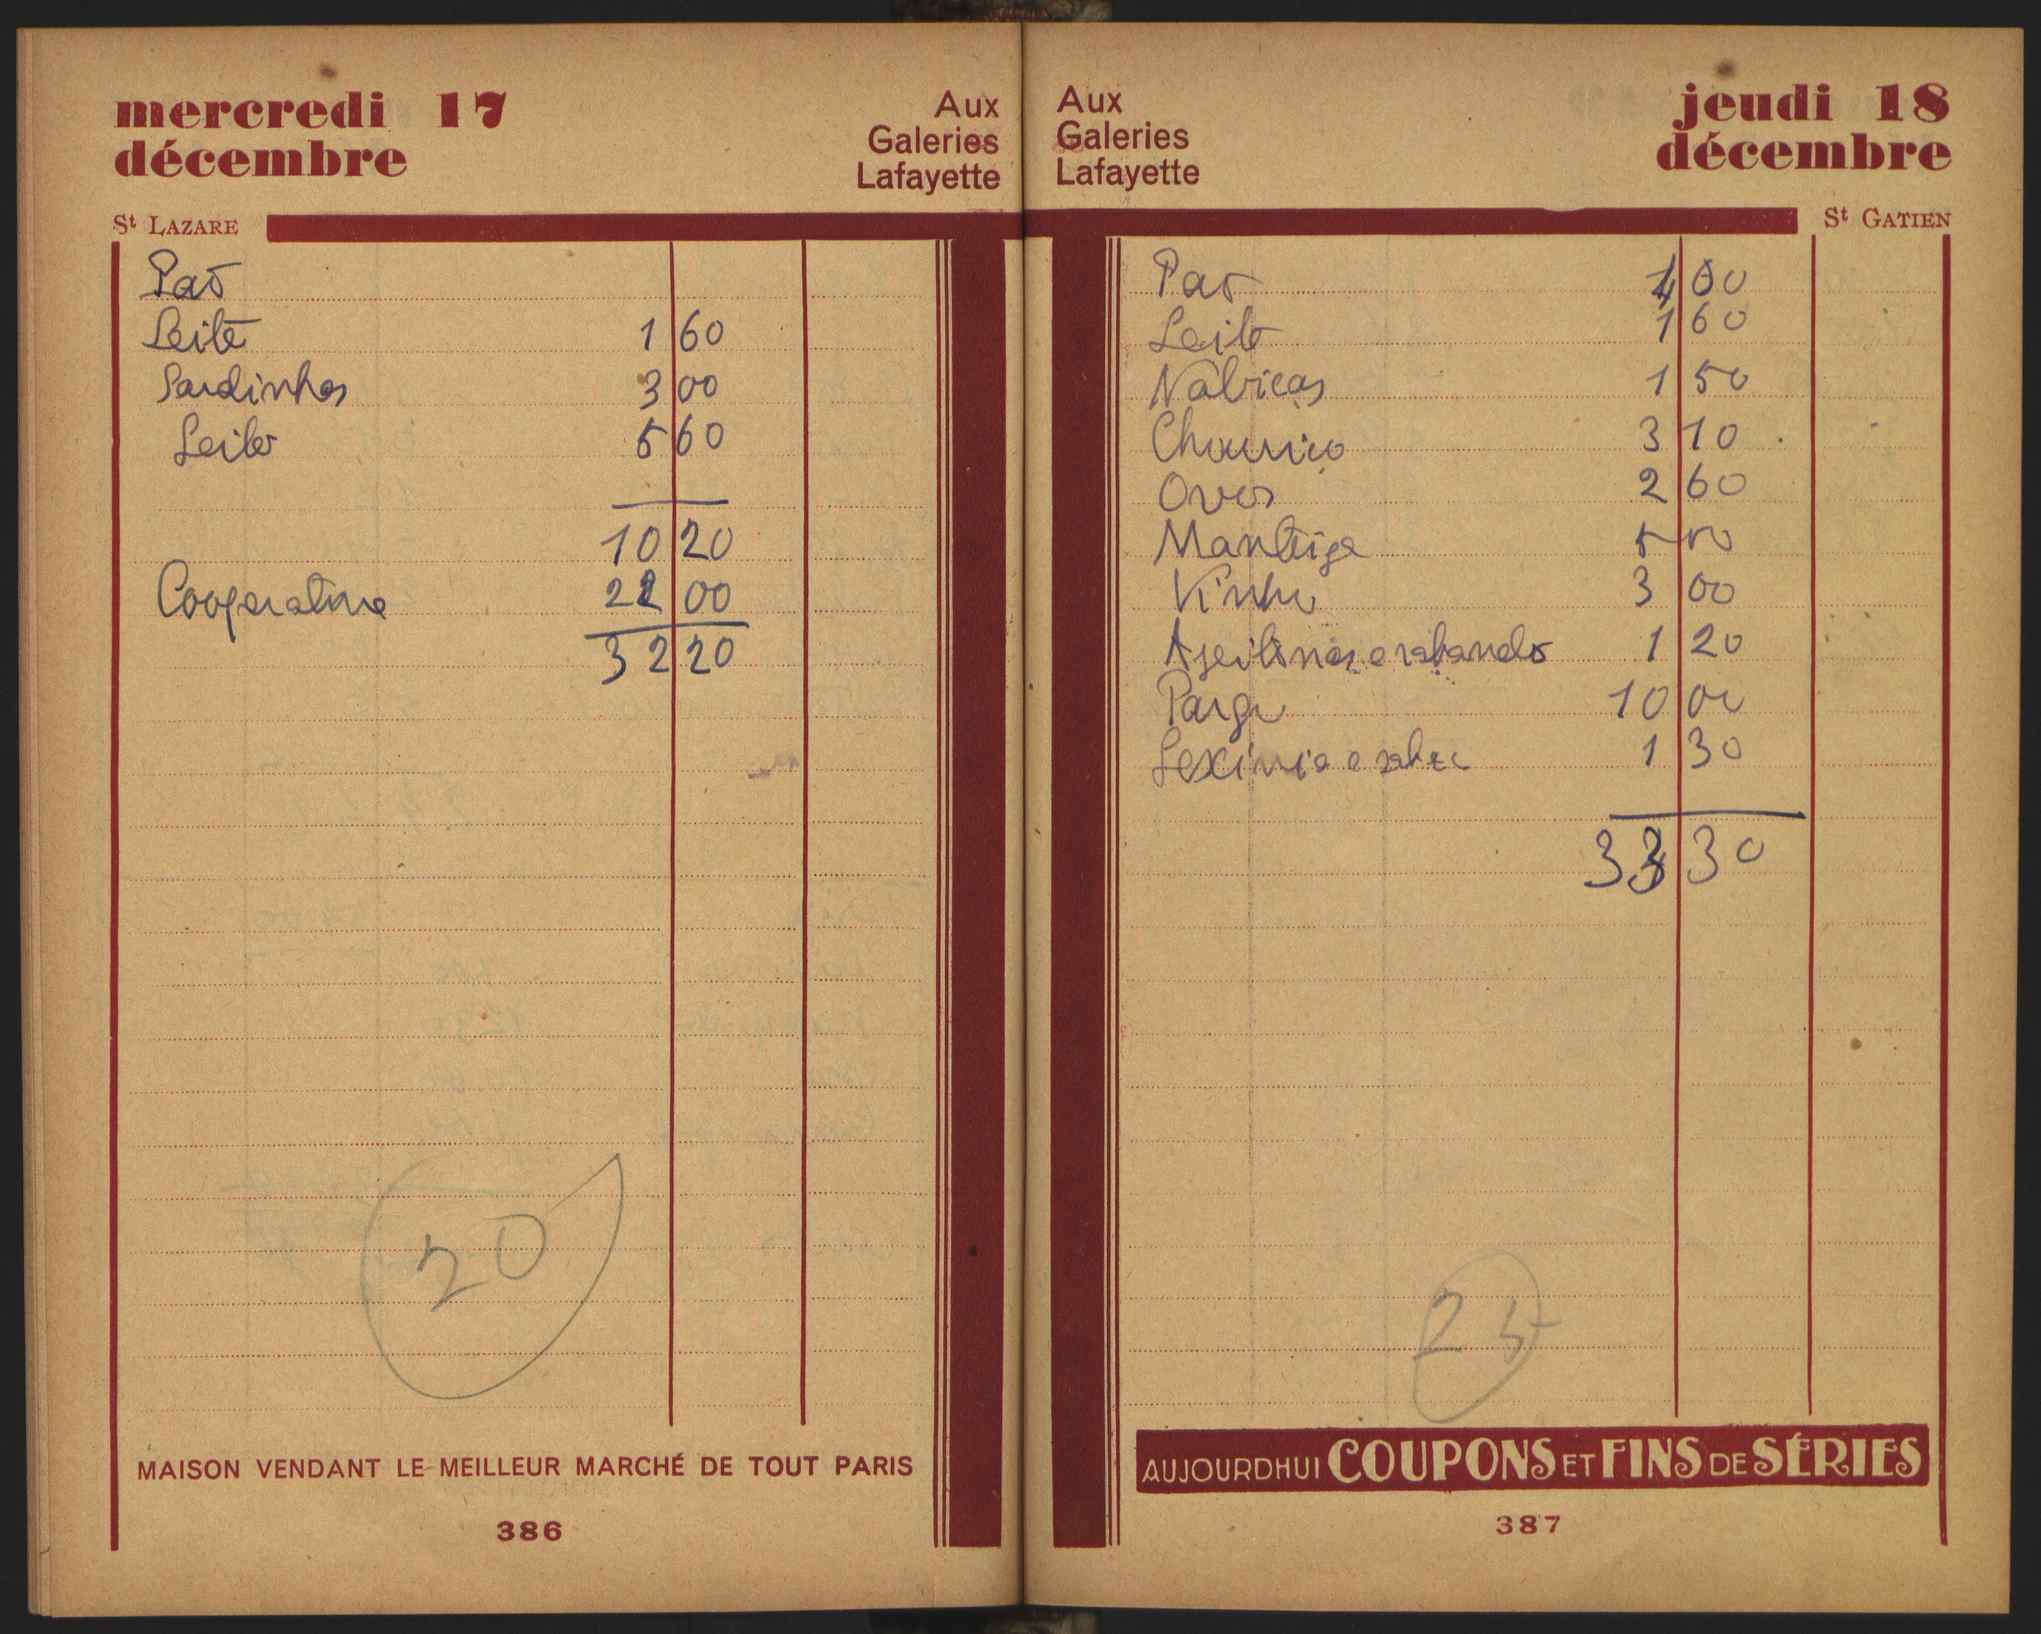 mercredi 17
décembre
Aux
Galeries
Lafayette
St LAZARE
Pão
Leite 1 60
Sardinhas 3 00
Leite 5 60
10 20
Cooperativa 22 00
32 20
20
MAISON VENDANT LE MEILLEUR MARCHÉ DE TOUT PARIS
386
Aux
Galeries
Lafayette
jeudi 18
décembre
St GATIEN
Pao 4 00
Leite 1 60
Nabiças 1 50
Chouriço 3 10
Ovos 2 60
Manteiga 5 00
Vinho 3 00
Azeitonas e rabanetes 1 20
Pargo 10 00
Lexivia e 1 30
33 30
25
AUJOURDHUI COUPONS ET FINS DE SÉRIES
387